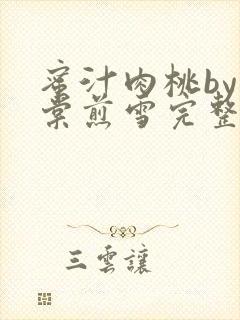 蜜汁肉桃by
棠煎雪完整
三雲讓